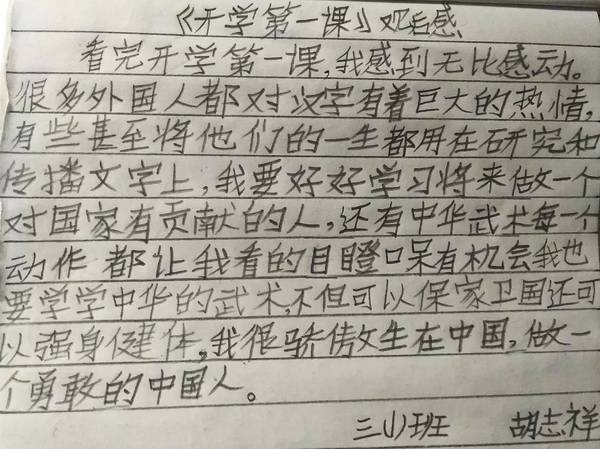 《开学第一课》观后感
看完开学第一课,我感到无比感动。
很多外国人都对汉字有着巨大的热情,
有些甚至将他们的一生都用在研究和
传播文字上,我要好好学习将来做一个
对国家有贡献的人,还有中华武术每一个
动作都让我看的目瞪口呆有机会我也
要学学中华的武术,不但可以保家卫国还可
以强身健体,我很骄傲生在中国,做一
个勇敢的中国人。
三(1)班 胡志祥